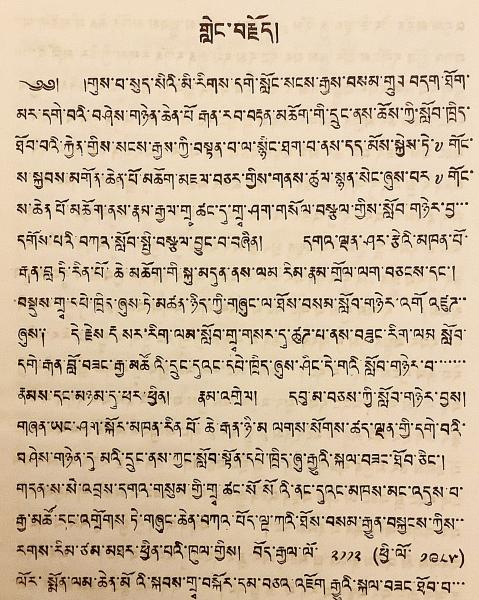 གླེང་བརྗོད།
༄༅། །གུས་བ་སུད་སིའི་མི་རིགས་དགེ་སློང་སངས་རྒྱས་བསམ་གྲུབ་བདག་ཐོག་
མར་དགེ་བའི་བཤེས་གཉེན་ཆེན་པོ་རྒན་རབ་བརྟན་མཆོག་གི་དྲུང་ནས་ཆོས་ཀྱི་སློབ་ཁྲིད་
ཐོབ་བའི་རྐྱེན་གྱིས་སངས་རྒྱས་ཀྱི་བསྟན་བ་ལ་སྙིང་ཐག་བ་ནས་དད་མོས་སྐྱེས་ཏེ་༧ གོང་
ས་སྐྱབས་མགོན་ཆེན་པོ་མཆོག་མཇལ་བཅར་གྱིས་གནས་ཚུལ་སྙན་སེང་ཞུས་བར་༧ གོང་
ས་ཆེན་པོ་མཆོག་ནས་རྣམ་རྒྱལ་གྲྭ་ཚང་དུ་གྲྭ་ཤག་གསོལ་བསྩལ་གྱིས་སློབ་གཉེར་བྱ་
དགོས་པའི་བཀའ་སློབ་སྩལ་བྱུང་བ་བཞིན། དགའ་ལྡན་ཤར་རྩེའི་མཁན་པོ་
རྒན་བློ་ཏི་རིན་པོ་ཆེ་མཆོག་གི་སྐུ་མདུན་ནས་ལམ་རིམ་རྣམ་གྲོལ་ལག་བཅངས་དང་།
བསྡུས་གྲྭ་དཔེ་ཁྲིད་ཞུས་ཏེ་མཚན་ཉིད་ཀྱི་གཞུང་ལ་ཐོས་བསམ་སློབ་གཉེར་འགོ་འཛུ
ཞུས། དེ་རྗེས་ར་སར་རིག་ལམ་སློབ་གྲྭ་གསར་དུ་ཚུཊ་པ་ནས་བཟུང་རིག་ལམ་སློབ་
དགེ་རྒན་བློ་བཟང་རྒྱ་མཚོའི་དྲུང་དུའང་དཔེ་ཁྲིད་ཞུས་ཤིང་དེ་གའི་སློབ་གཉེར་བ་
རྣམས་དང་མཉམ་དུ་ཕར་ཕྱིན། རྣམ་འགྲེལ། དབུ་མ་བཅས་ཀྱི་སློབ་གཉེར་བྱས།
གཞན་ཡང་ཤག་སྐོར་མཁན་རིན་པོ་ཆེ་རྒན་ཉི་མ་ལགས་སོགས་ཚད་ལྡན་གྱི་དགེ་བའི་
བཤེས་གཉེན་དུ་མའི་དྲུང་ནས་ཀྱང་སློབ་སྟོན་དཔེ་ཁྲིད་ཞུ་རྒྱུའི་སྐལ་བཟང་ཐོབ་ཅིང་།
གདན་ས་སེ་འབྲས་དགའ་གསུམ་གྱི་གྲྭ་ཚང་སོ་སོའི་ནང་དུའང་མཁས་མང་འདུས་བ་
རྒྱ་མཚོ་དང་འགྲོགས་ཏེ་གཞུང་ཆེན་བཀའ་པོད་ལྔ་ཀའི་ཐོས་བསམ་རྒྱུན་བསྐྱངས་ཀྱིས་
རགས་རིམ་ཙམ་མཐར་ཕྱིན་པའི་ཁུལ་གྱིས། བོད་རྒྱལ་ལོ་ ༢༡༡༢ (ཕྱི་ལོ་ ༡༩༨༥)
ལོར་སྨོན་ལམ་ཆེན་མོའི་སྐབས་གྲྭ་བསྐོར་དམ་བཅའ་འཇོག་རྒྱུའི་སྐལ་བཟང་ཐོབ་བ་